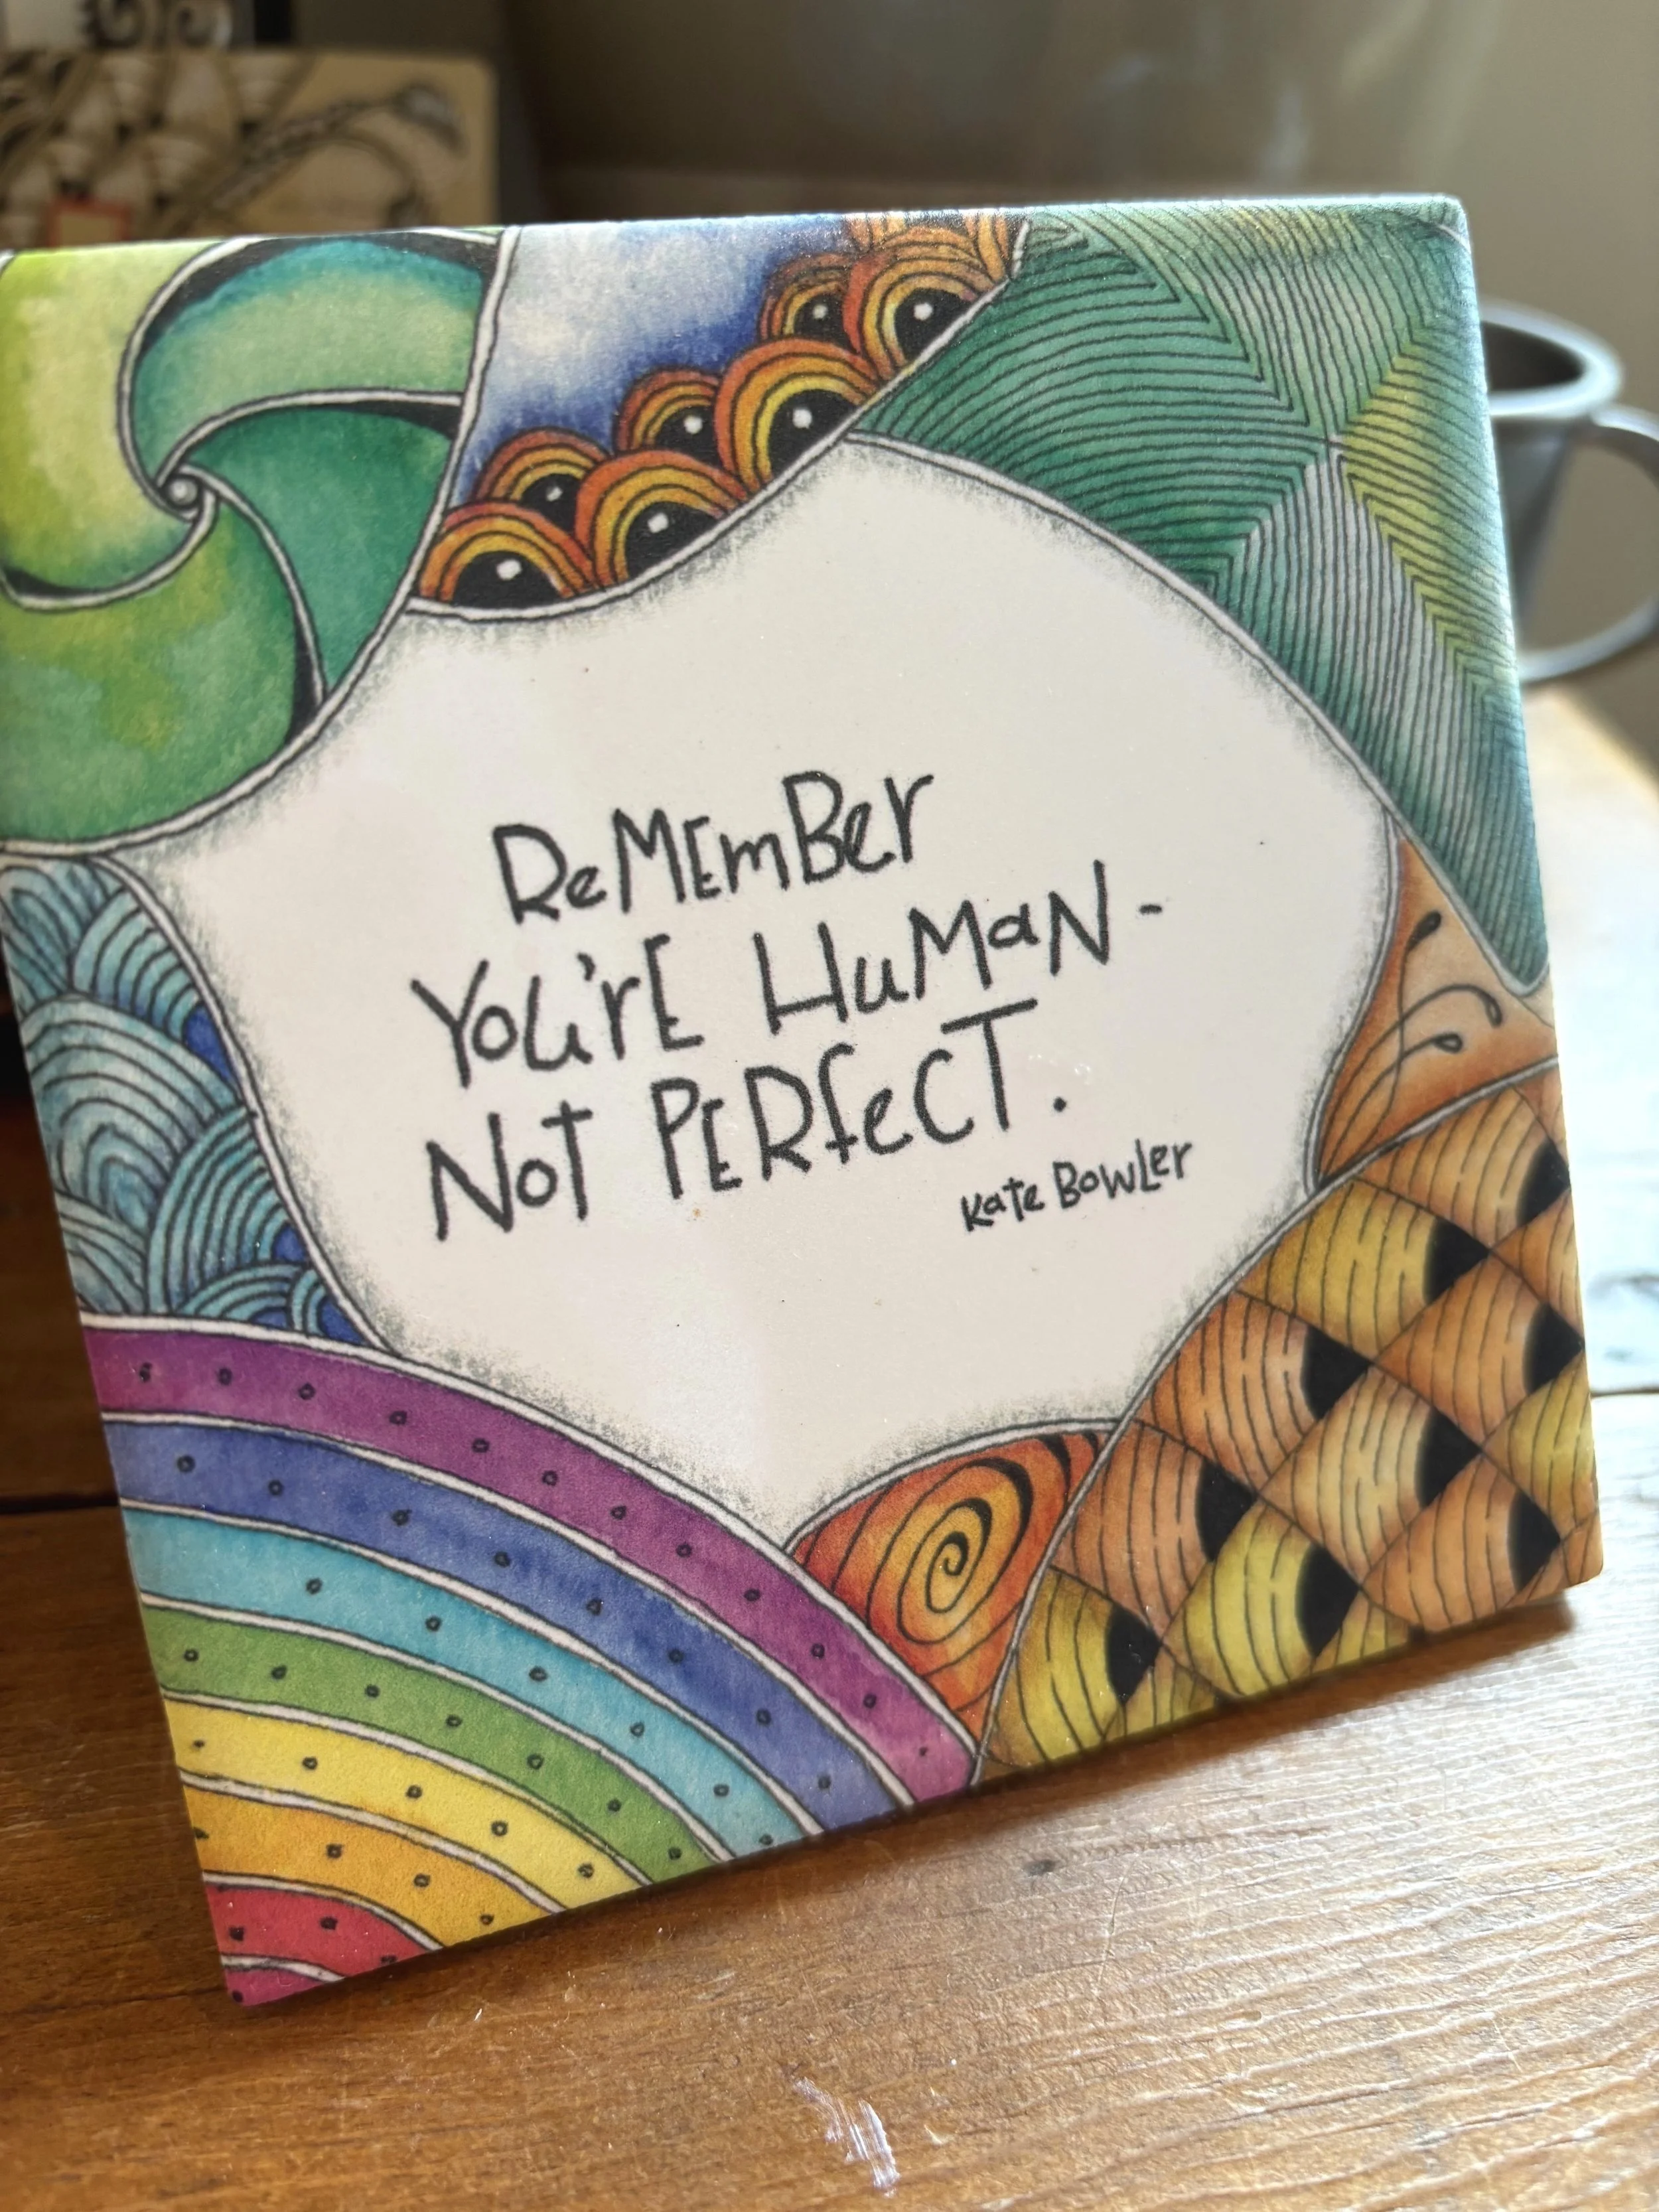 ReMEmBer
You'rE HuMaN -
Not PERfeCT.
Kate Bowler